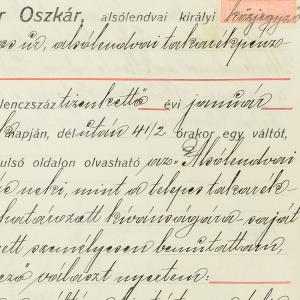 r Oszkár, alsólendvai királyi közjegyző
es úr, alsólendvai takarékpénz-
lenczszáz tizenkettő évi január
k napján, dél után 4 1/2 órakor egy váltót,
ulsó oldalon olvasható az "Alsólendvai
neki, mint a telepes takarék
határozott kívánságára saját
ett személyesen bemutattam,
ező választ nyertem: